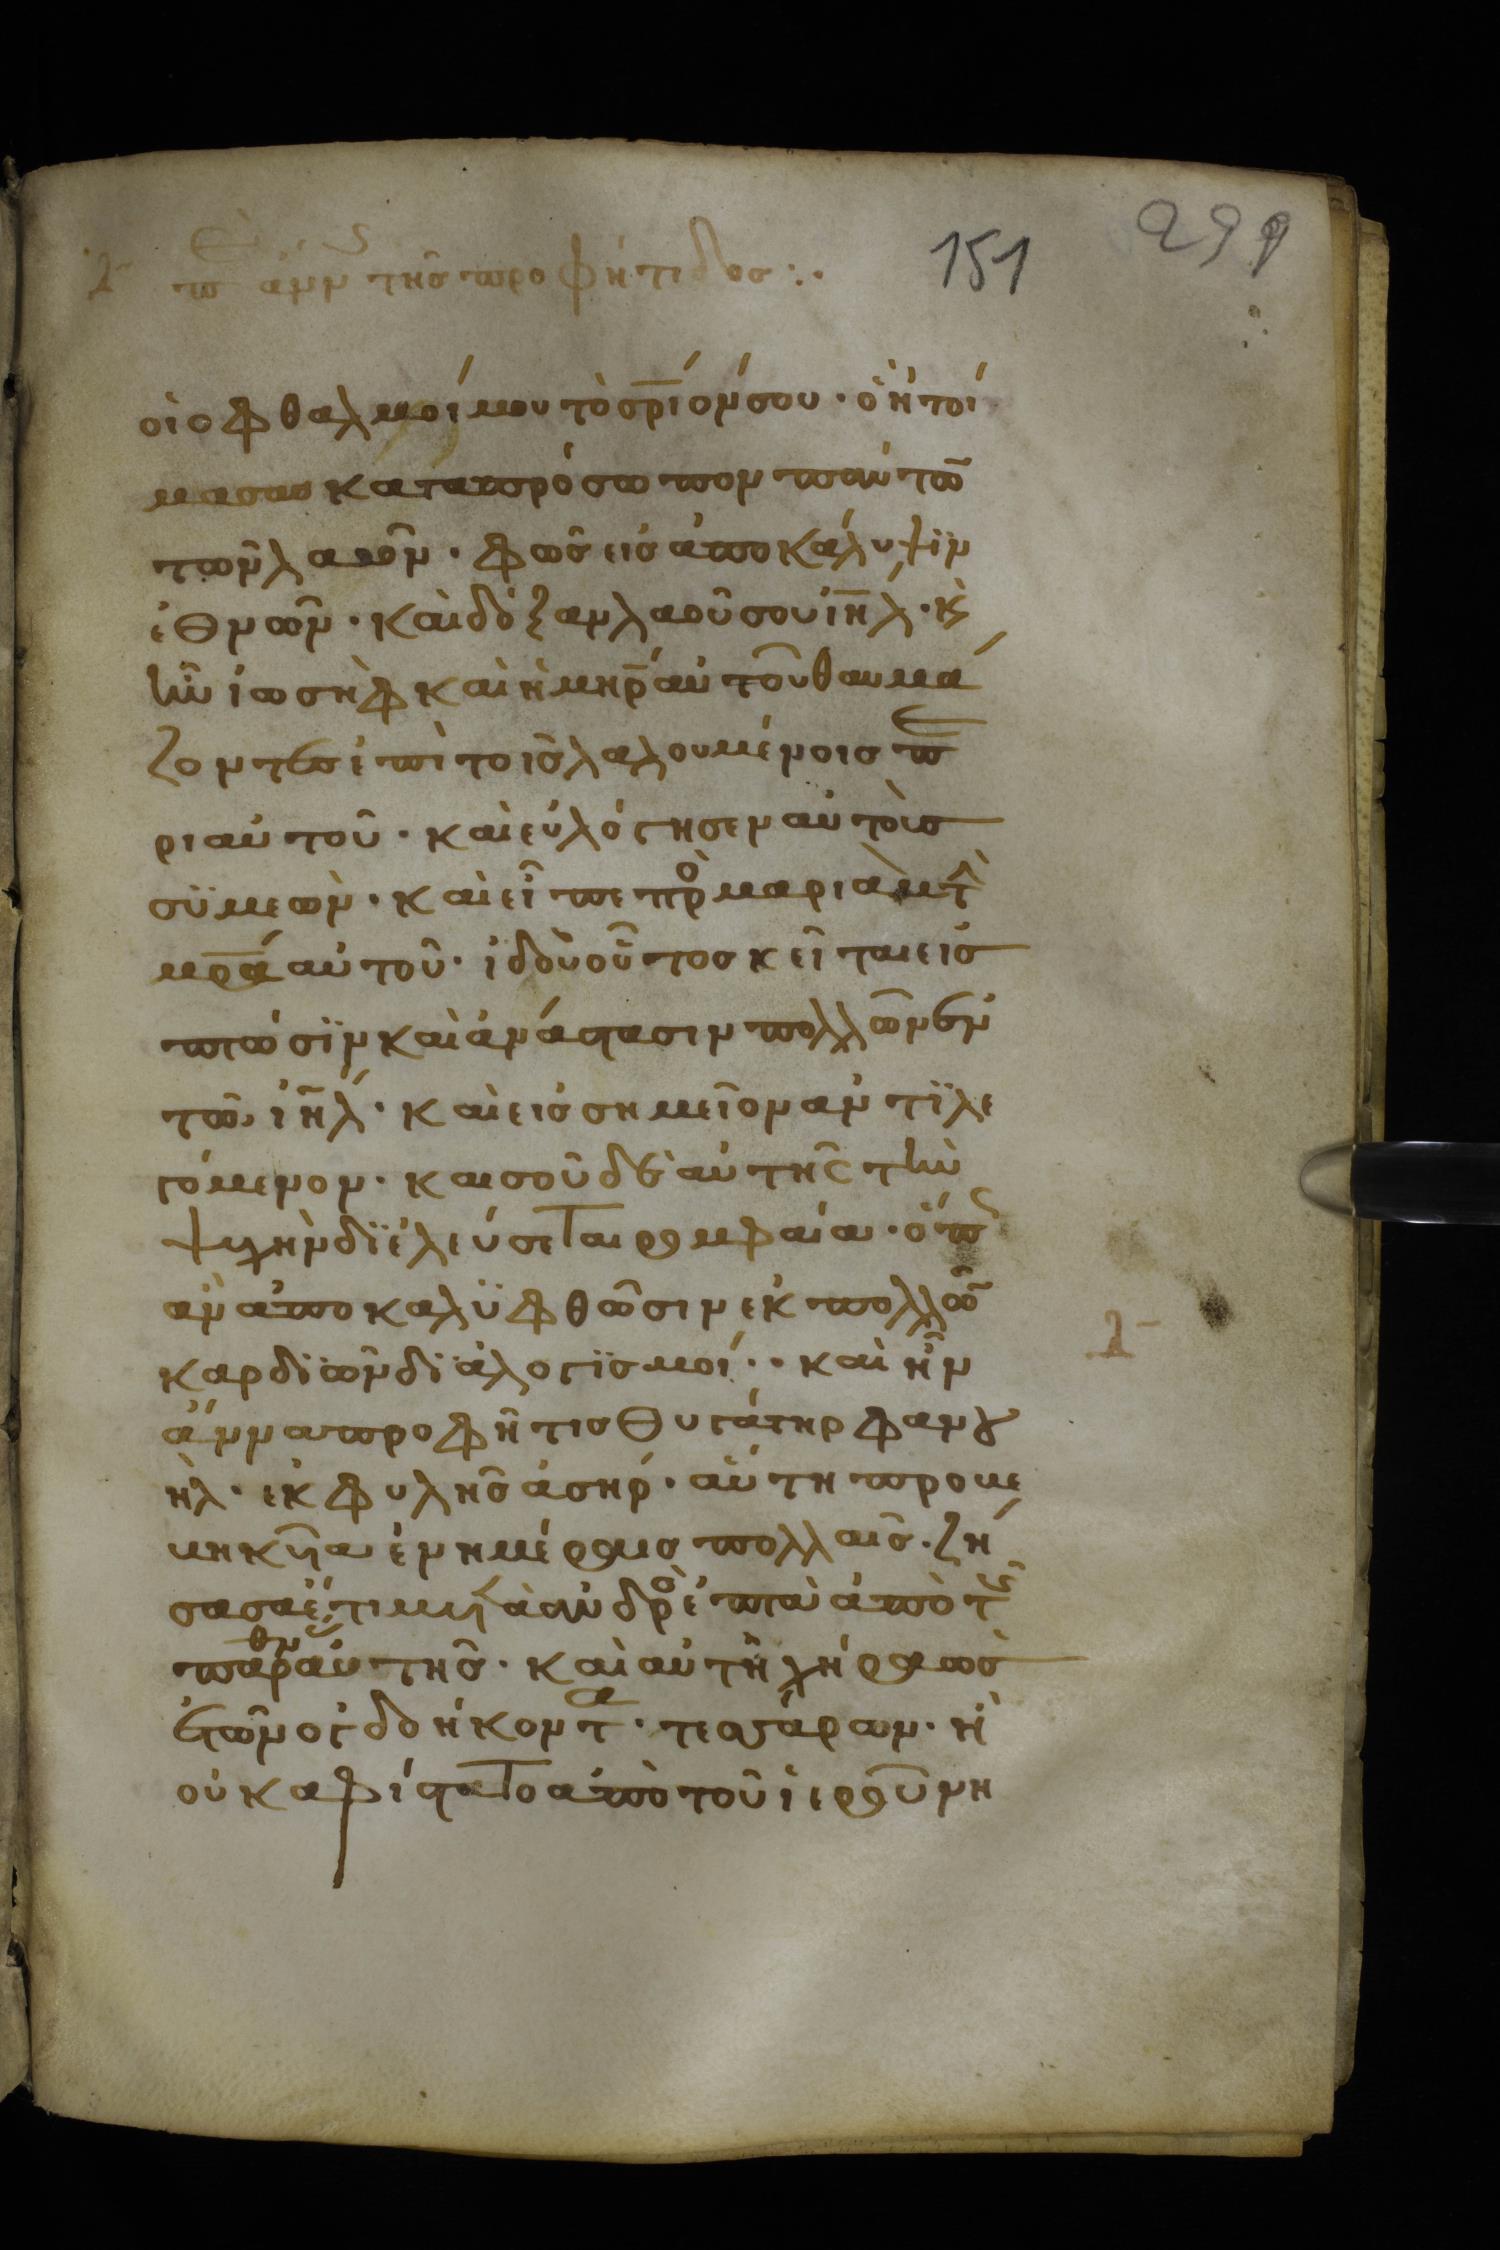 λ πε αννης της προφητιδος :·
151
299
οι οφθαλμοί μου το σριόν σου · ὃ ητοί
μασας κατα πρόσωπον παντω
των λαῶν · φῶς εις ἀποκάλυψϊν
ἐθνῶν · και δόξαν λαοῦ σου ιηλ · κ
ην ιωσηφ και η μηρ αυτου θαυμά
ζοντες ἐπι τοις λαλουμένοις πε
ρι αυτοῦ · και ευλόγησεν αυτοις
συμεων · και εἶπε προ μαριαμ τ
μρα αυτοῦ · ἰδου οῦτος κεῖται εις
πτῶσϊν και ἀνάστασιν πολλῶν εν
τῶ ιηλ · και εις σημεῖον ἀντϊλε
γόμενον · και σοῦ δε αυτης την
ψυχην διελεύσεται ρομφαία · ὅπς
ἀν ἀποκαλυφθῶσιν εκ πολλῶ
καρδϊῶν δϊαλογϊσμοί · · και ην
ἄννα προφῆτις θυγάτηρ φανου
ηλ · εκ φυλης ἀσήρ · αὕτη προβε
βηκυῖα ἐν ημέραις πολλαις · ζή
σασα ἔτι μη α ανδρο ἐπτα ἀπο τ
παρθν αυτης · και αυτη χήρα ως
ετῶν ογδοήκοντα · τεσσάρων · ἡ
ουκ αφίστατο απο τοῦ ἱερου νη
λ